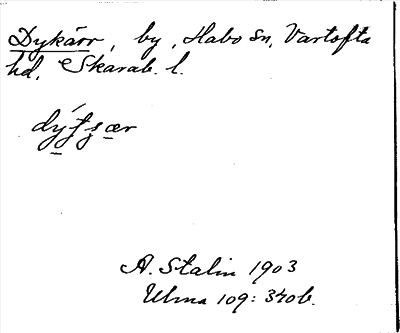 Dykärr, by, Habo sn, Vartofta
hd, Skarab. l.
A. Stalin 1903
Ulma 109: 340b.